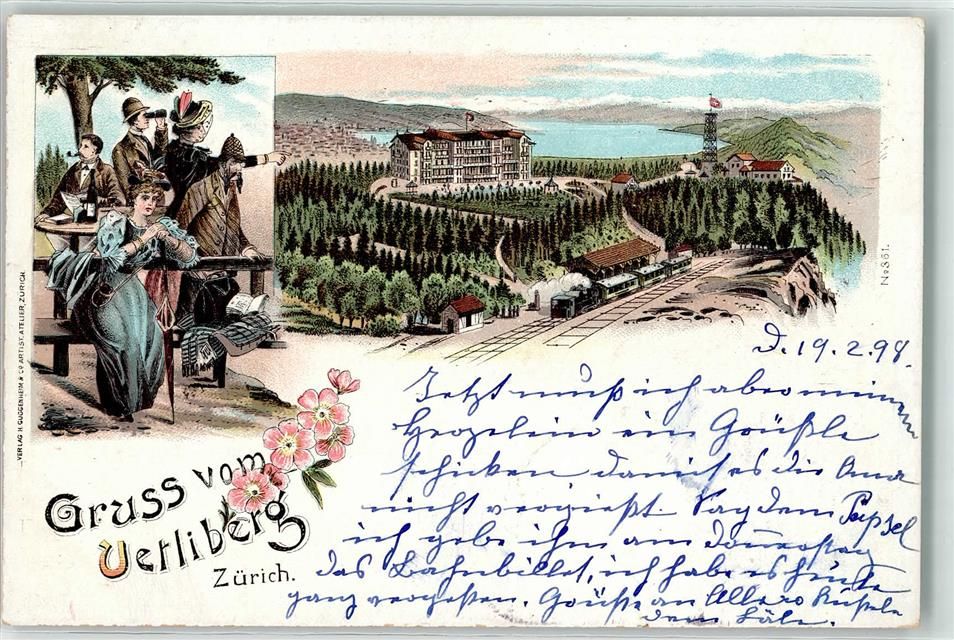 VERLAG H. GUGGENHEIM & Co ARTIST. ATELIER, ZÜRICH.
No 361.
Gruss vom
Uetliberg
Zürich.
D. 19.2.98
Jetzt muß ich aber meinem
Herzelein ein Grüßle
schicken damit es die
nicht vergißt. Sag dem
ich gebe ihm am Donnerstag
das Bahnbillet, ich habe es heute
ganz vergessen. Grüße an
dem